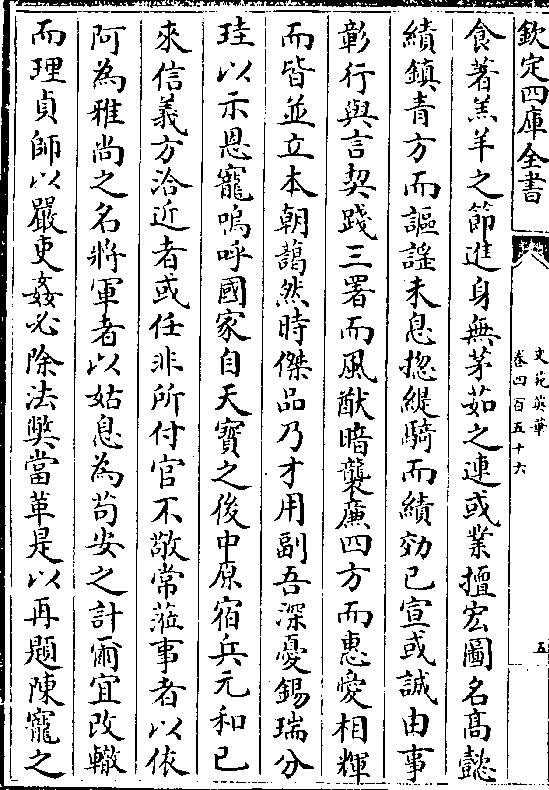 欽定四庫全書
文苑英華
卷四百五十六
五
食著羔羊之節進身無茅茹之連或業擅宏圖名髙懿
績鎮青方而謳謡未息揔緹騎而績効已宣或誠由事
彰行與言契踐三署而風猷暗襲廉四方而惠愛相輝
而皆並立本朝藹然時傑品乃才用副吾深憂錫瑞分
珪以示恩寵嗚呼國家自天寶之後中原宿兵元和已
來信義方洽近者或任非所付官不敬常蒞事者以依
阿為雅尚之名將軍者以姑息為苟安之計爾宜改轍
而理貞師以嚴吏姦必除法獘當革是以再題陳寵之